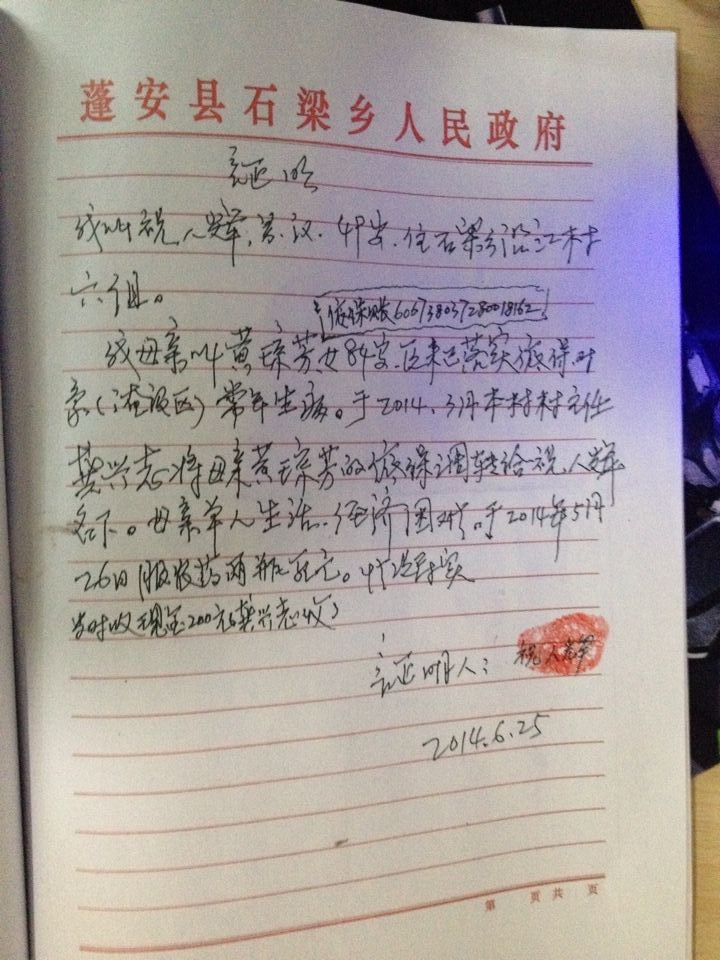 蓬安县石梁乡人民政府
证明
我叫祝人辉,男,汉.49岁.住石梁乡沿江村
六组。
低保账606738037280018162
我母亲叫黄琼芳女84岁,历来已落实低保对
象(淹没区)常年生病。于2014.3月本村村主任
龚兴志将母亲黄琼芳的低保调转给祝人辉
名下。母亲单人生活.经济困难.于2014年5月
26日服农药两瓶死亡。情况属实
当时收现金200元龚兴志收
证明人:祝人辉
2014.6.25
第 页共 页